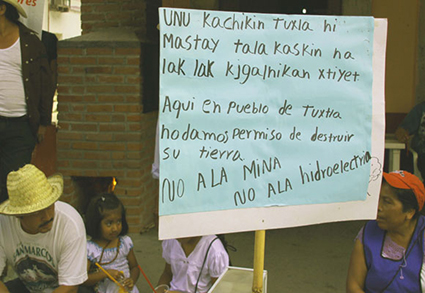 UNU Kachikin Tuxla ni
Mastay tala kaskin na
lak lak kjgalhikan xtiyet
Aqui en Pueblo de Tuxtla
nodamos permiso de destruir
su tierra
NO A LA MINA
NO ALA hidroelectria
SAN MARCOS